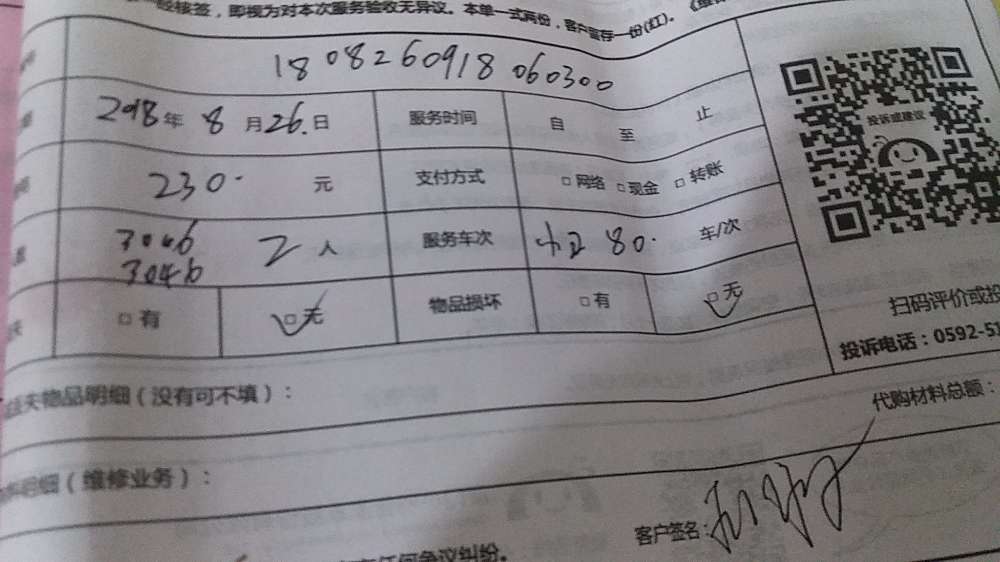 核签，即视为对本次服务验收无异议。本单一式两份，客户留存一份(红)。
18 08260918 060300
2018年 8 月 26.日 服务时间 自 至 止
230. 元 支付方式 □网络 □现金 □转账
3046
3046 2 人 服务车次 80. 车/次
□有 □无 物品损坏 □有 □无
投诉或建议
扫码评价或投
投诉电话：0592-51
失物品明细（没有可不填）：
代购材料总额：
明细（维修业务）：
客户签名：
任何争议纠纷。